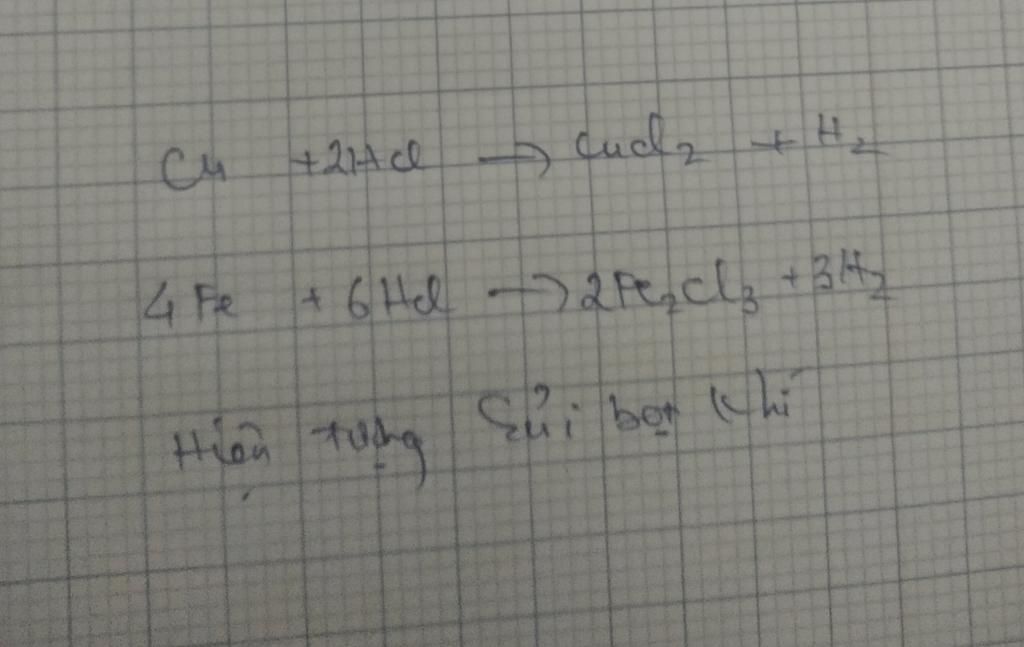 Cu + 2HCl → CuCl₂ + H₂
4Fe + 6HCl → 2Fe₂Cl₃ + 3H₂
Hiện tượng Sủi bọt khí